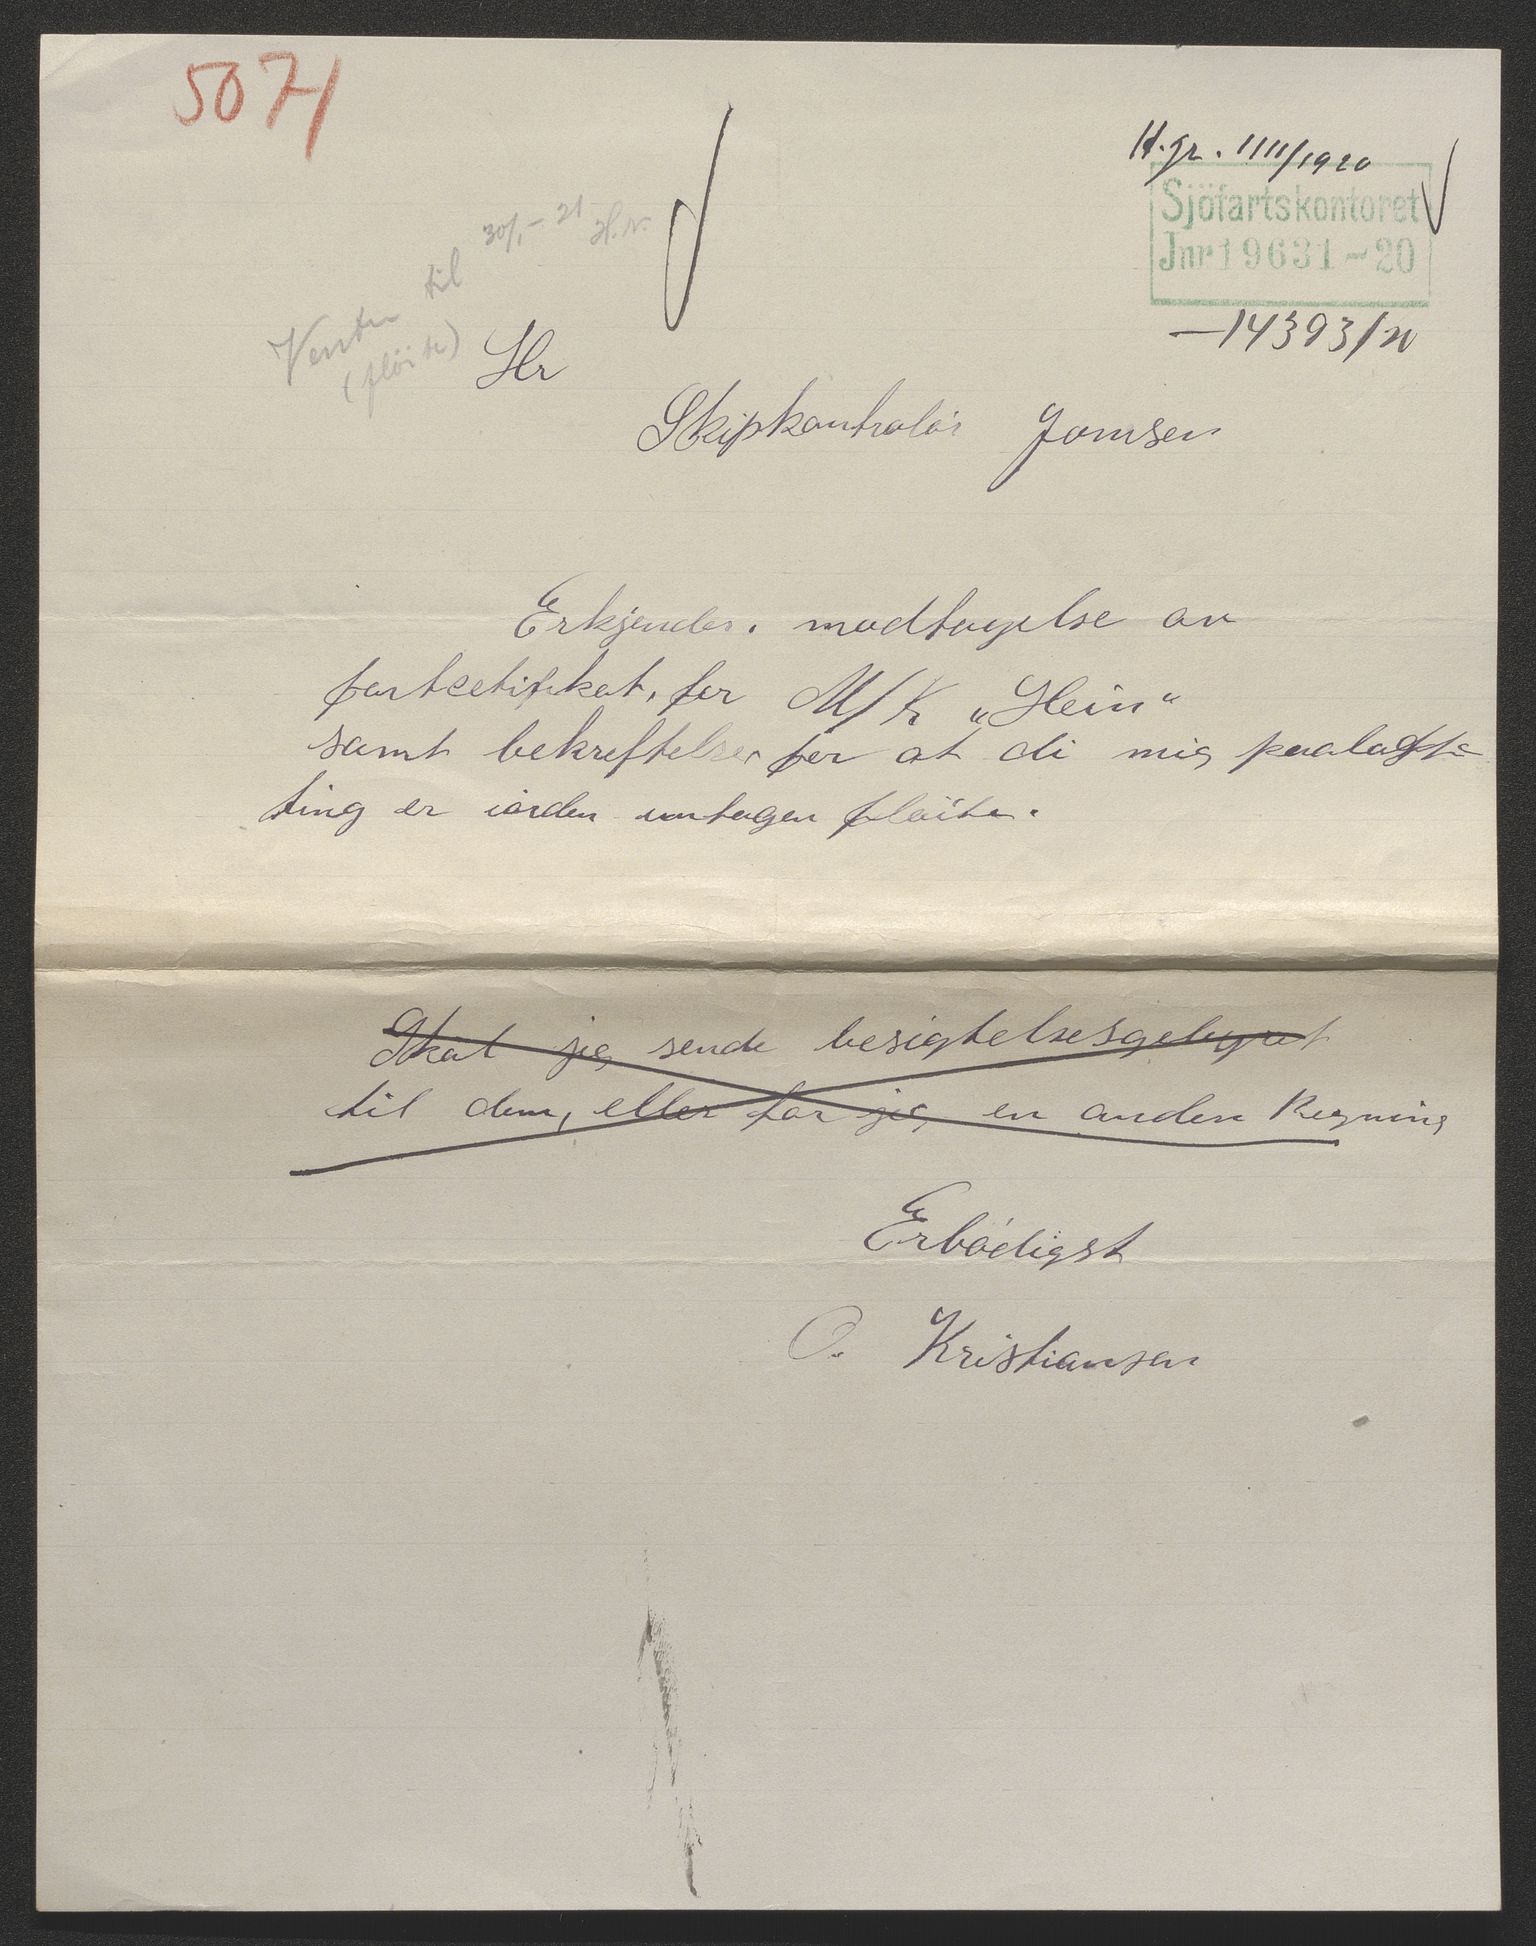 5071
H.gr. 1111/1920
Sjöfartskontoret
Jnr 19631-20
-14393/20
Venter til 30/1-21 H.N.
(flöite)
Hr
Skipkontrolör Jomsen
Erkjender. modtagelse av
fartsetifikat, for M/K „Hein“
samt bekreftelser for at di mig paalagte
ting er iorden untagen flöite.
Skal jeg sende besigtelsesgebyret
til dem, eller faar jeg en anden Regning
Erbödigst
O. Kristiansen